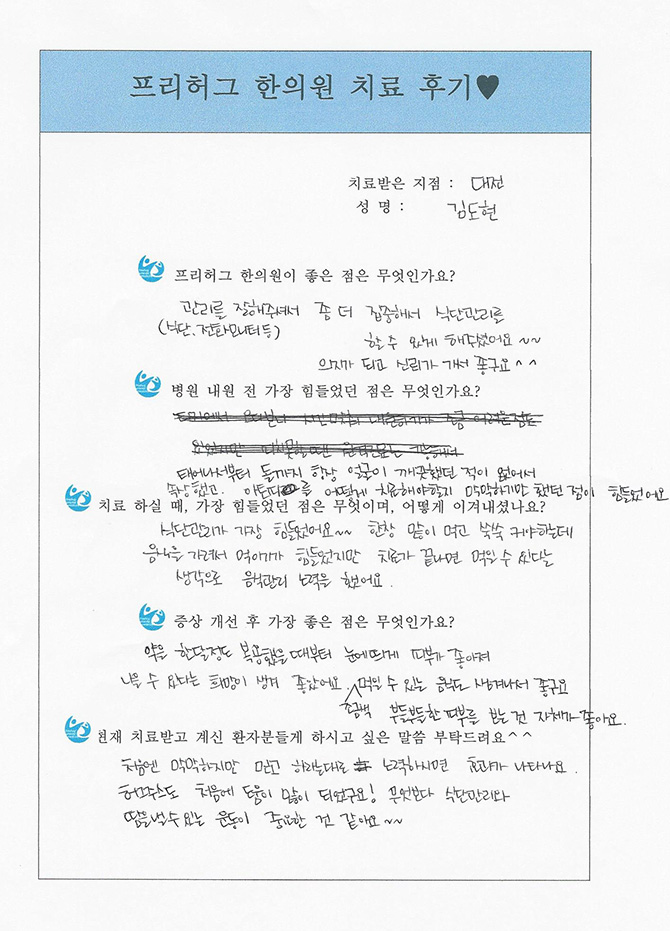 프리허그 한의원 치료 후기♥
치료받은 지점 : 대전
성 명 : 김도현
프리허그 한의원이 좋은 점은 무엇인가요?
관리를 잘해주셔서 좀 더 집중해서 식단관리를
(식단, 전화모니터등)
할 수 있게 해주셨어요 ~~
의지가 되고 신뢰가 가서 좋구요 ^ ^
병원 내원 전 가장 힘들었던 점은 무엇인가요?
태어나서부터 돌까지 항상 얼굴이 깨끗했던 적이 없어서
속상했고. 아토피를 어떻게 치료해야할지 막막하기만 했던 점이 힘들었어요
치료 하실 때, 가장 힘들었던 점은 무엇이며, 어떻게 이겨내셨나요?
식단관리가 가장 힘들었어요~~ 한창 많이 먹고 쑥쑥 커야하는데
음식을 가려서 먹이기가 힘들었지만 치료가 끝나면 먹일 수 있다는
생각으로 음식관리 노력을 했어요.
증상 개선 후 가장 좋은 점은 무엇인가요?
약을 한달정도 복용했을 때부터 눈에띄게 피부가 좋아져
나을 수 있다는 희망이 생겨 좋았어요. 먹일 수 있는 음식도 생겨나서 좋구요
부들부들한 피부를 보는 건 자체가 좋아요.
현재 치료받고 계신 환자분들게 하시고 싶은 말씀 부탁드려요^^
처음엔 막막하지만 믿고 하라는대로 노력하시면 효과가 나타나요.
처음에 도움이 많이 되었구요! 무엇보다 식단관리와
땀을낼수있는 운동이 중요한 것 같아요~~